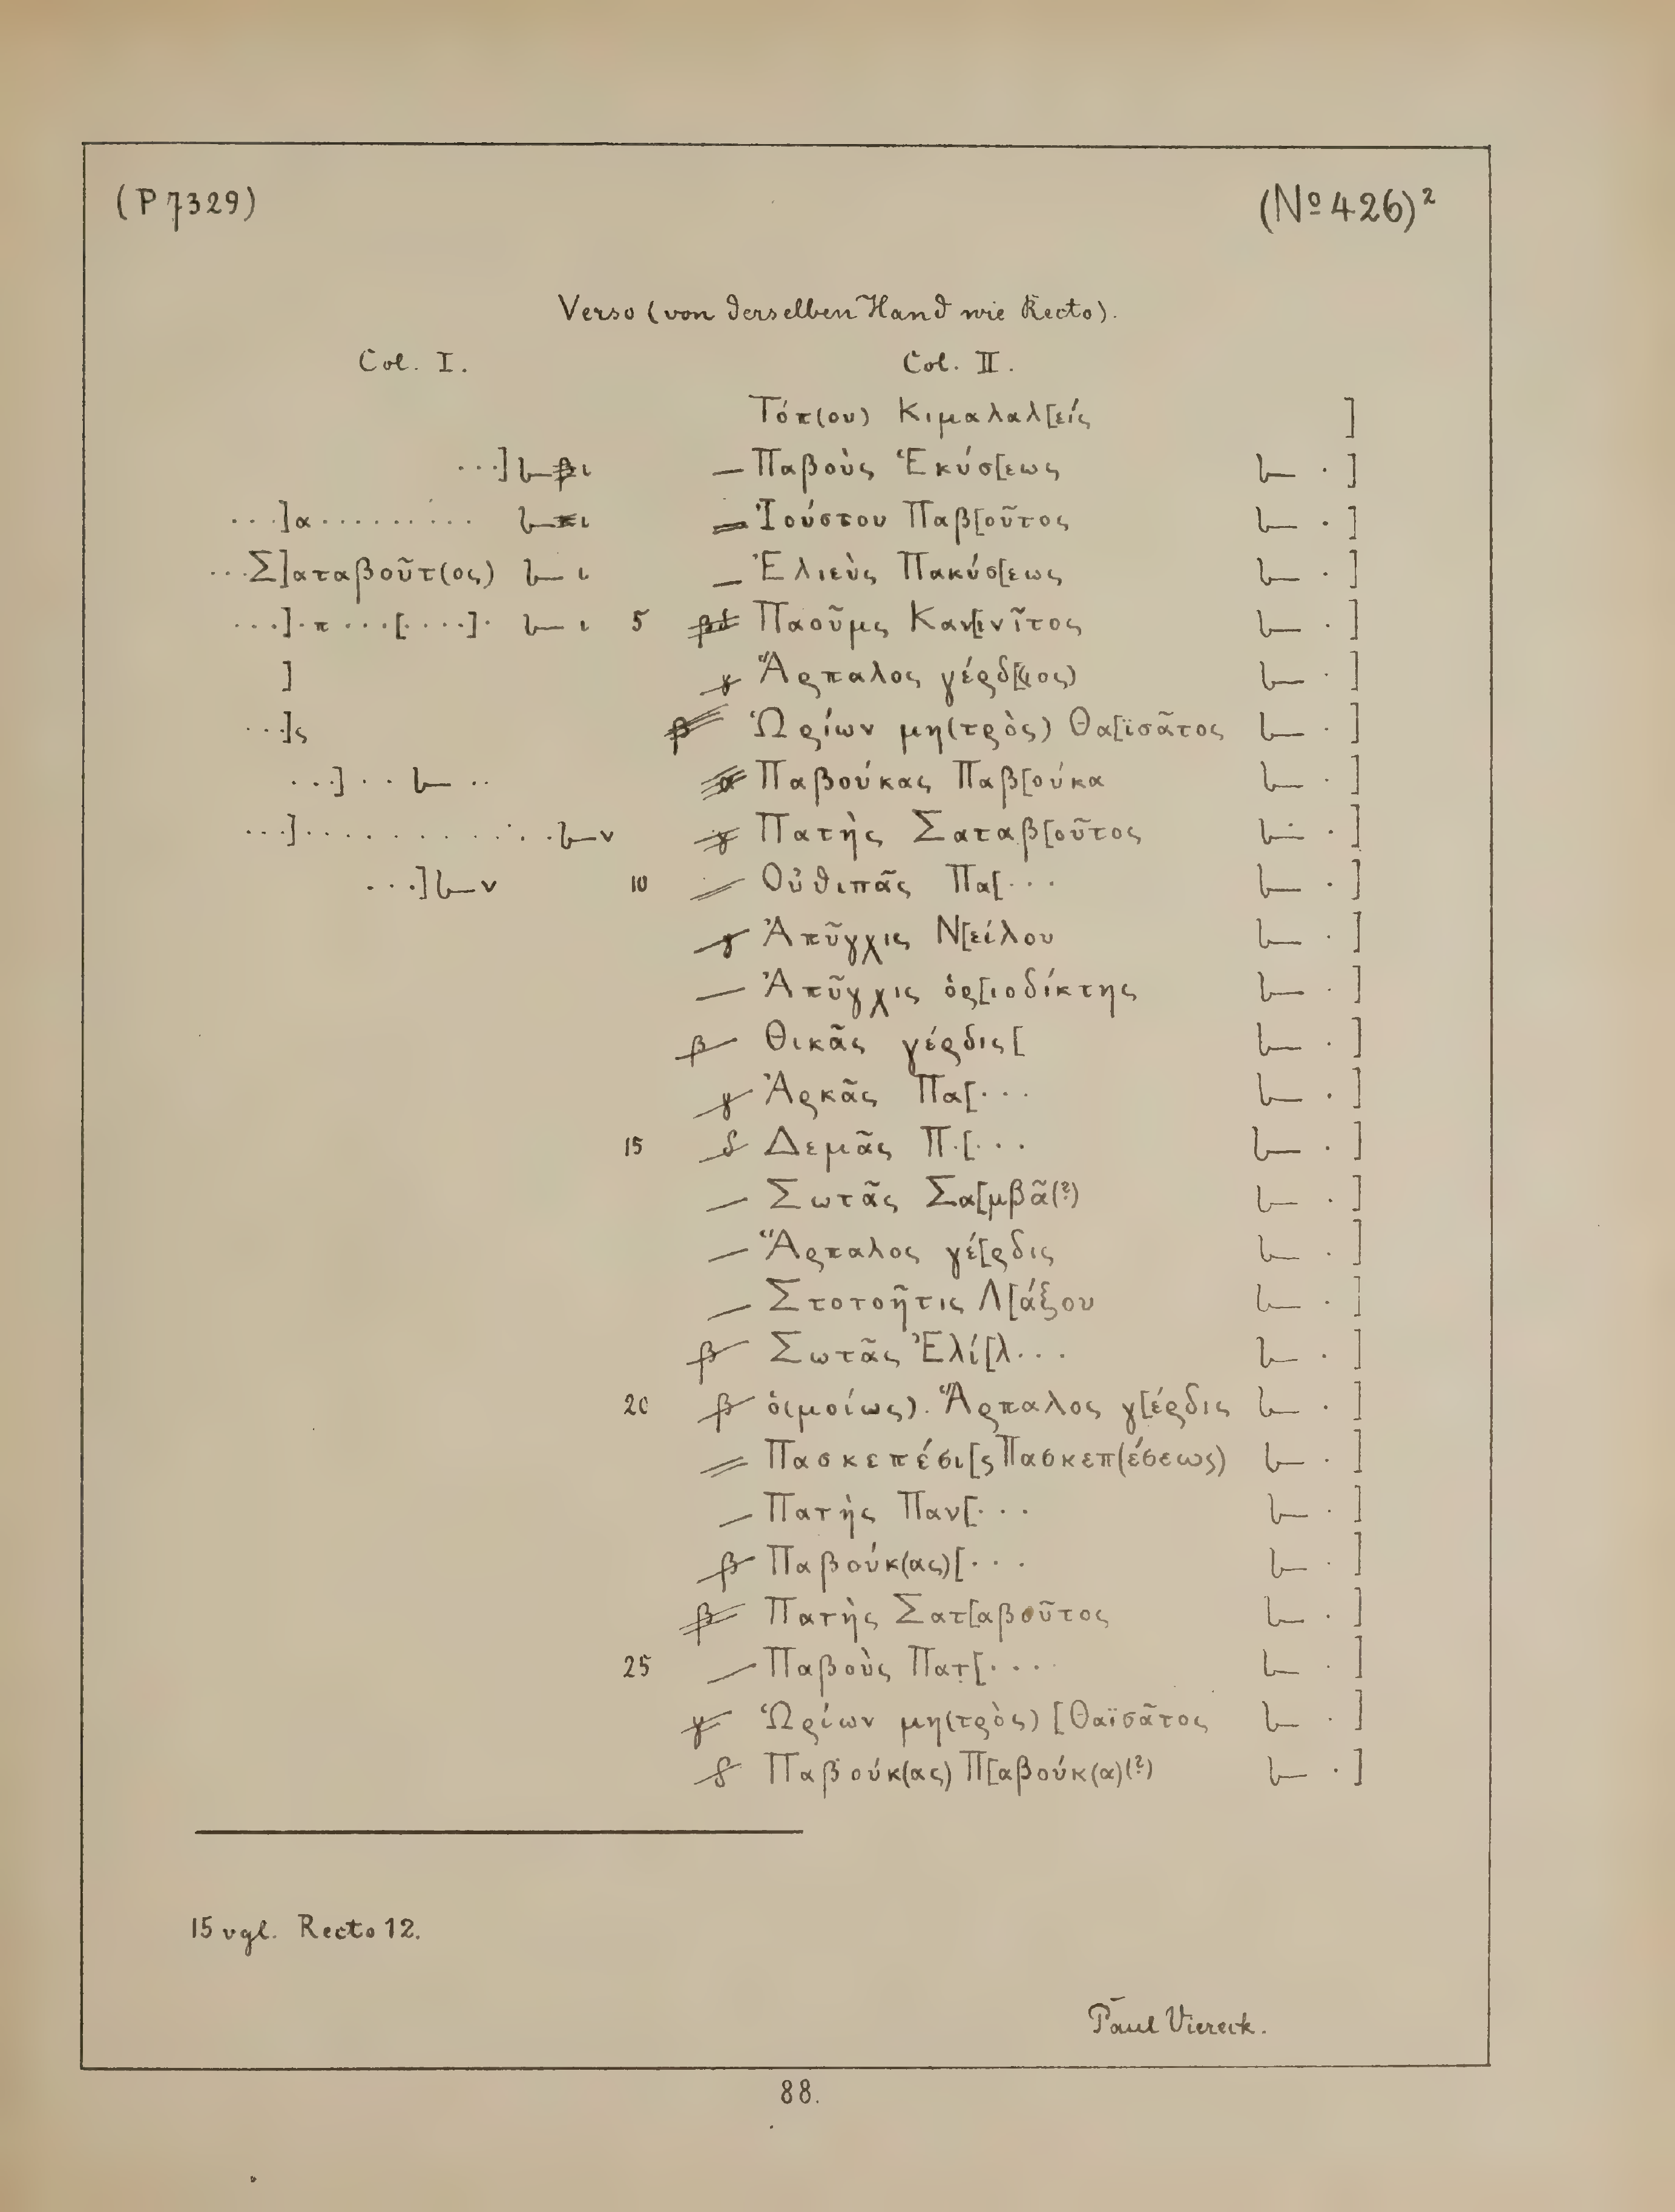 (P 7329)
(Nº 426)²
Verso (von derselben Hand wie Recto).
Col. I.
...] 𐅻 β ι
...]α......... 𐅻 ι
...Σ]αταβοῦτ(ος) 𐅻 ι
...].π...[....]. 𐅻 ι
]
...]ς
...].. 𐅻 ..
...]............ 𐅻 ν
...] 𐅻 ν
Col. II.
Τόπ(ου) Κιμαλαλ[είς ]
— Παβοὺς Ἑκύσ[εως 𐅻 .]
Ἰούστου Παβ[οῦτος 𐅻 .]
— Ἐλιεὺς Πακύσ[εως 𐅻 .]
5 Παοῦμς Καν[ινῖτος 𐅻 .]
γ Ἅρπαλος γέρδ[(ιος) 𐅻 .]
β Ὡρίων μη(τρὸς) Θα[ϊσᾶτος 𐅻 .]
α Παβούκας Παβ[ούκα 𐅻 .]
γ Πατὴς Σαταβ[οῦτος 𐅻 .]
10 Οὐθιπᾶς Πα[... 𐅻 .]
γ Ἀπῦγχις Ν[είλου 𐅻 .]
— Ἀπῦγχις ὁρ[ιοδίκτης 𐅻 .]
β Θικᾶς γέρδις[ 𐅻 .]
γ Ἀρκᾶς Πα[... 𐅻 .]
15 δ Δεμᾶς Π.[... 𐅻 .]
— Σωτᾶς Σα[μβᾶ(?) 𐅻 .]
— Ἅρπαλος γέ[ρδις 𐅻 .]
— Στοτοῆτις Λ[άξου 𐅻 .]
β Σωτᾶς Ἐλί[λ... 𐅻 .]
20 β ὁ(μοίως). Ἅρπαλος γ[έρδις 𐅻 .]
= Πασκεπέσι[ς Πασκεπ(έσεως) 𐅻 .]
— Πατὴς Παν[... 𐅻 .]
β Παβούκ(ας)[... 𐅻 .]
β Πατὴς Σατ[αβοῦτος 𐅻 .]
25 — Παβοὺς Πατ[.... 𐅻 .]
γ Ὡρίων μη(τρὸς) [Θαϊσᾶτος 𐅻 .]
δ Παβούκ(ας) Π[αβούκ(α)(?) 𐅻 .]
15 vgl. Recto 12.
Paul Viereck.
88.